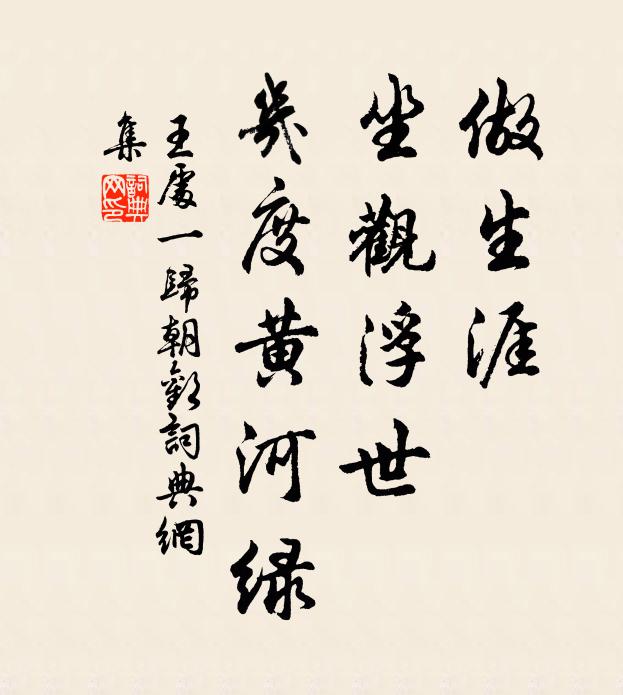 做生涯
坐觀浮世
幾度黃河綠
王處一歸朝歡詞典網
集
詞典網印